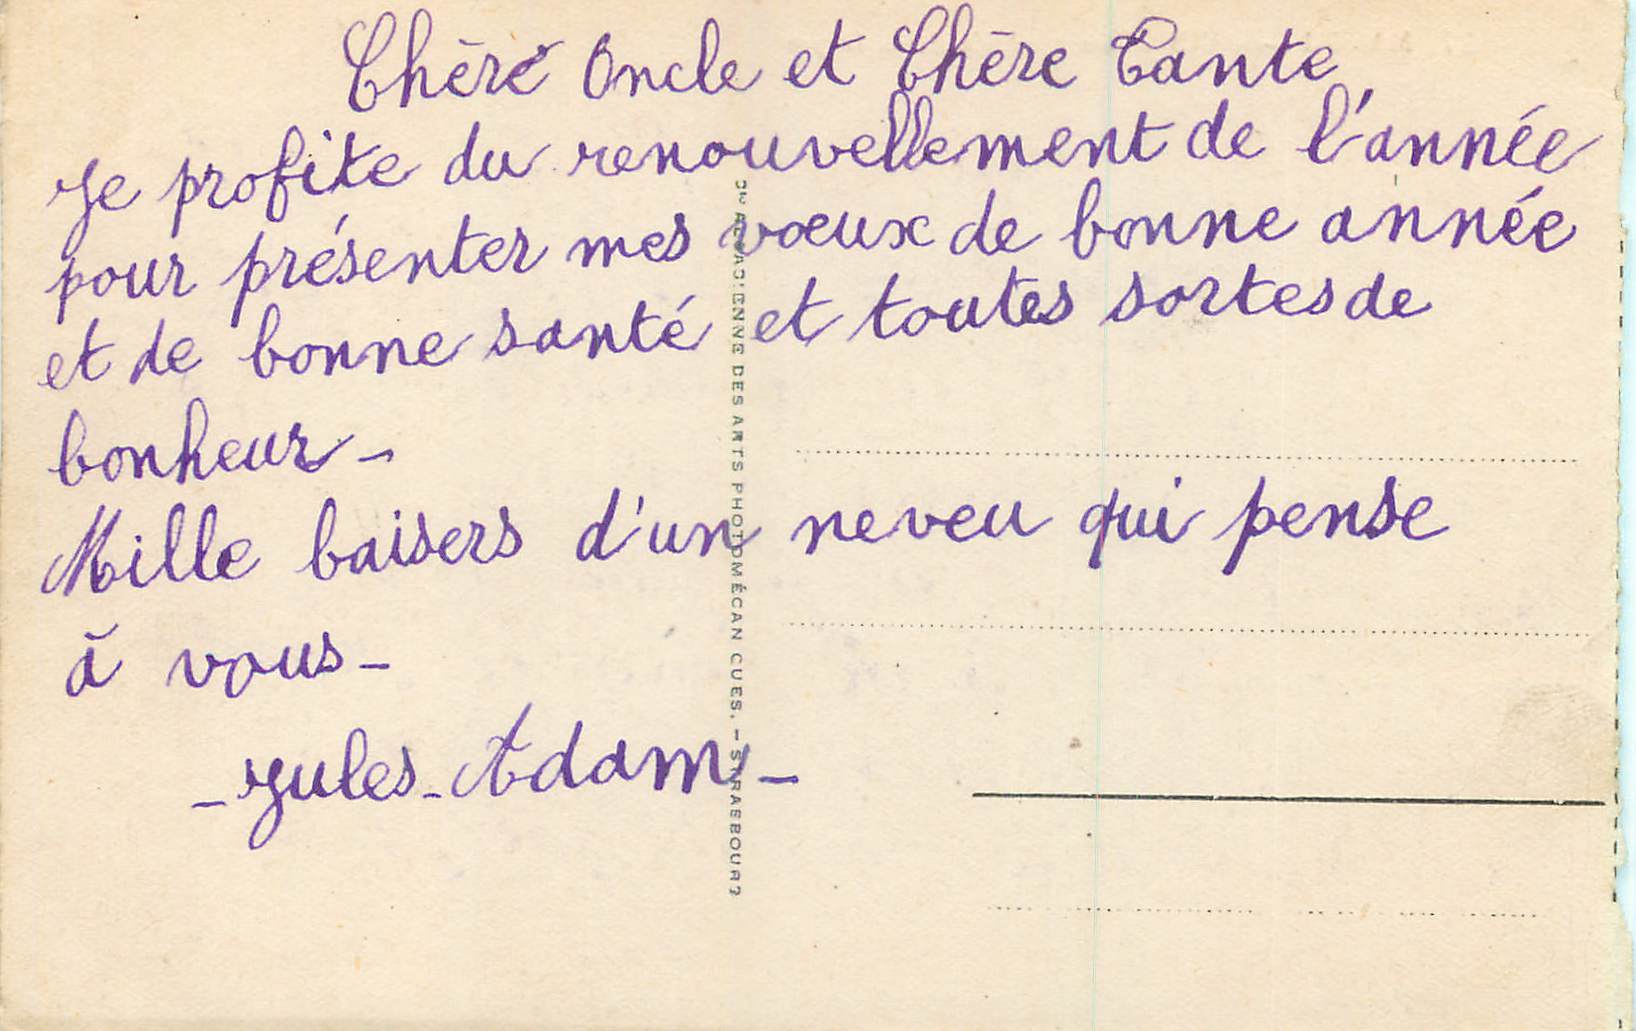 Chère Oncle et Chère Tante
Je profite du renouvellement de l'année
pour présenter mes voeux de bonne année
et de bonne santé et toutes sortes de
bonheur _
Mille baisers d'un neveu qui pense
à vous _
_ Jules _ Adam _
DES ARTS PHOTOMÉCANIQUES. — STRASBOURG